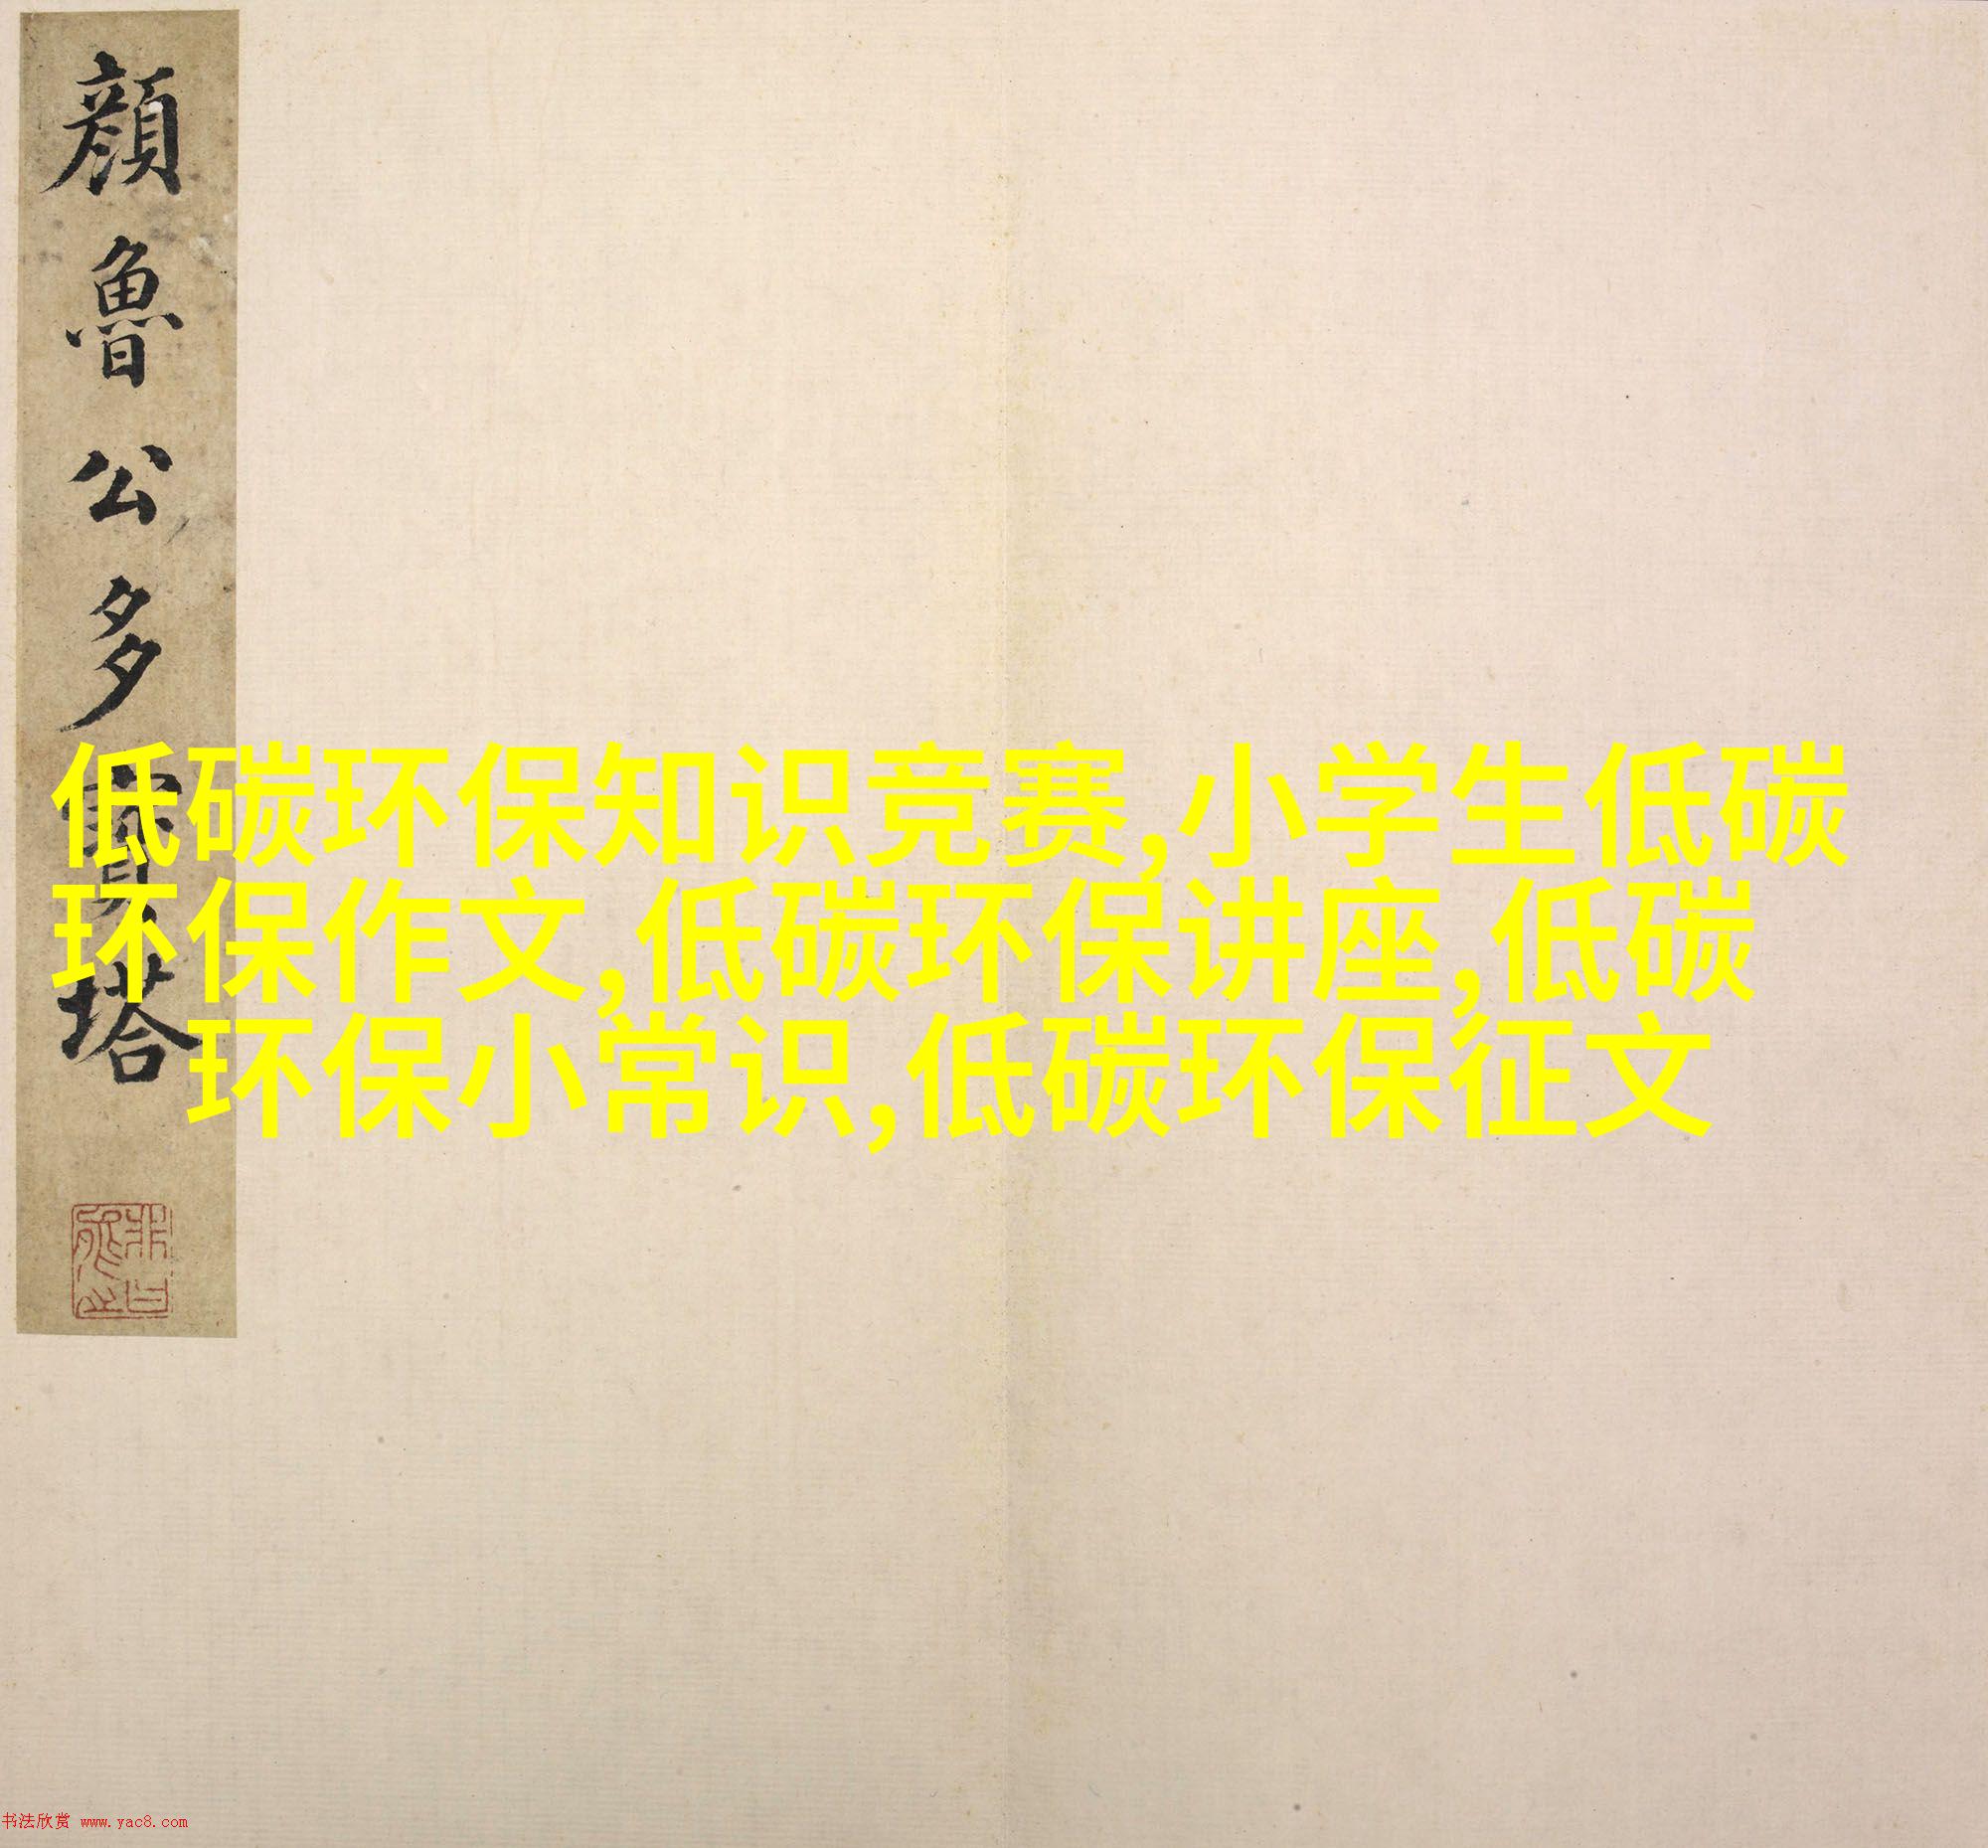 顔魯公多寶塔
低碳环保知识竞赛,小学生低碳
环保作文,低碳环保讲座,低碳
环保小常识,低碳环保征文
书法欣赏 www.yac8.com